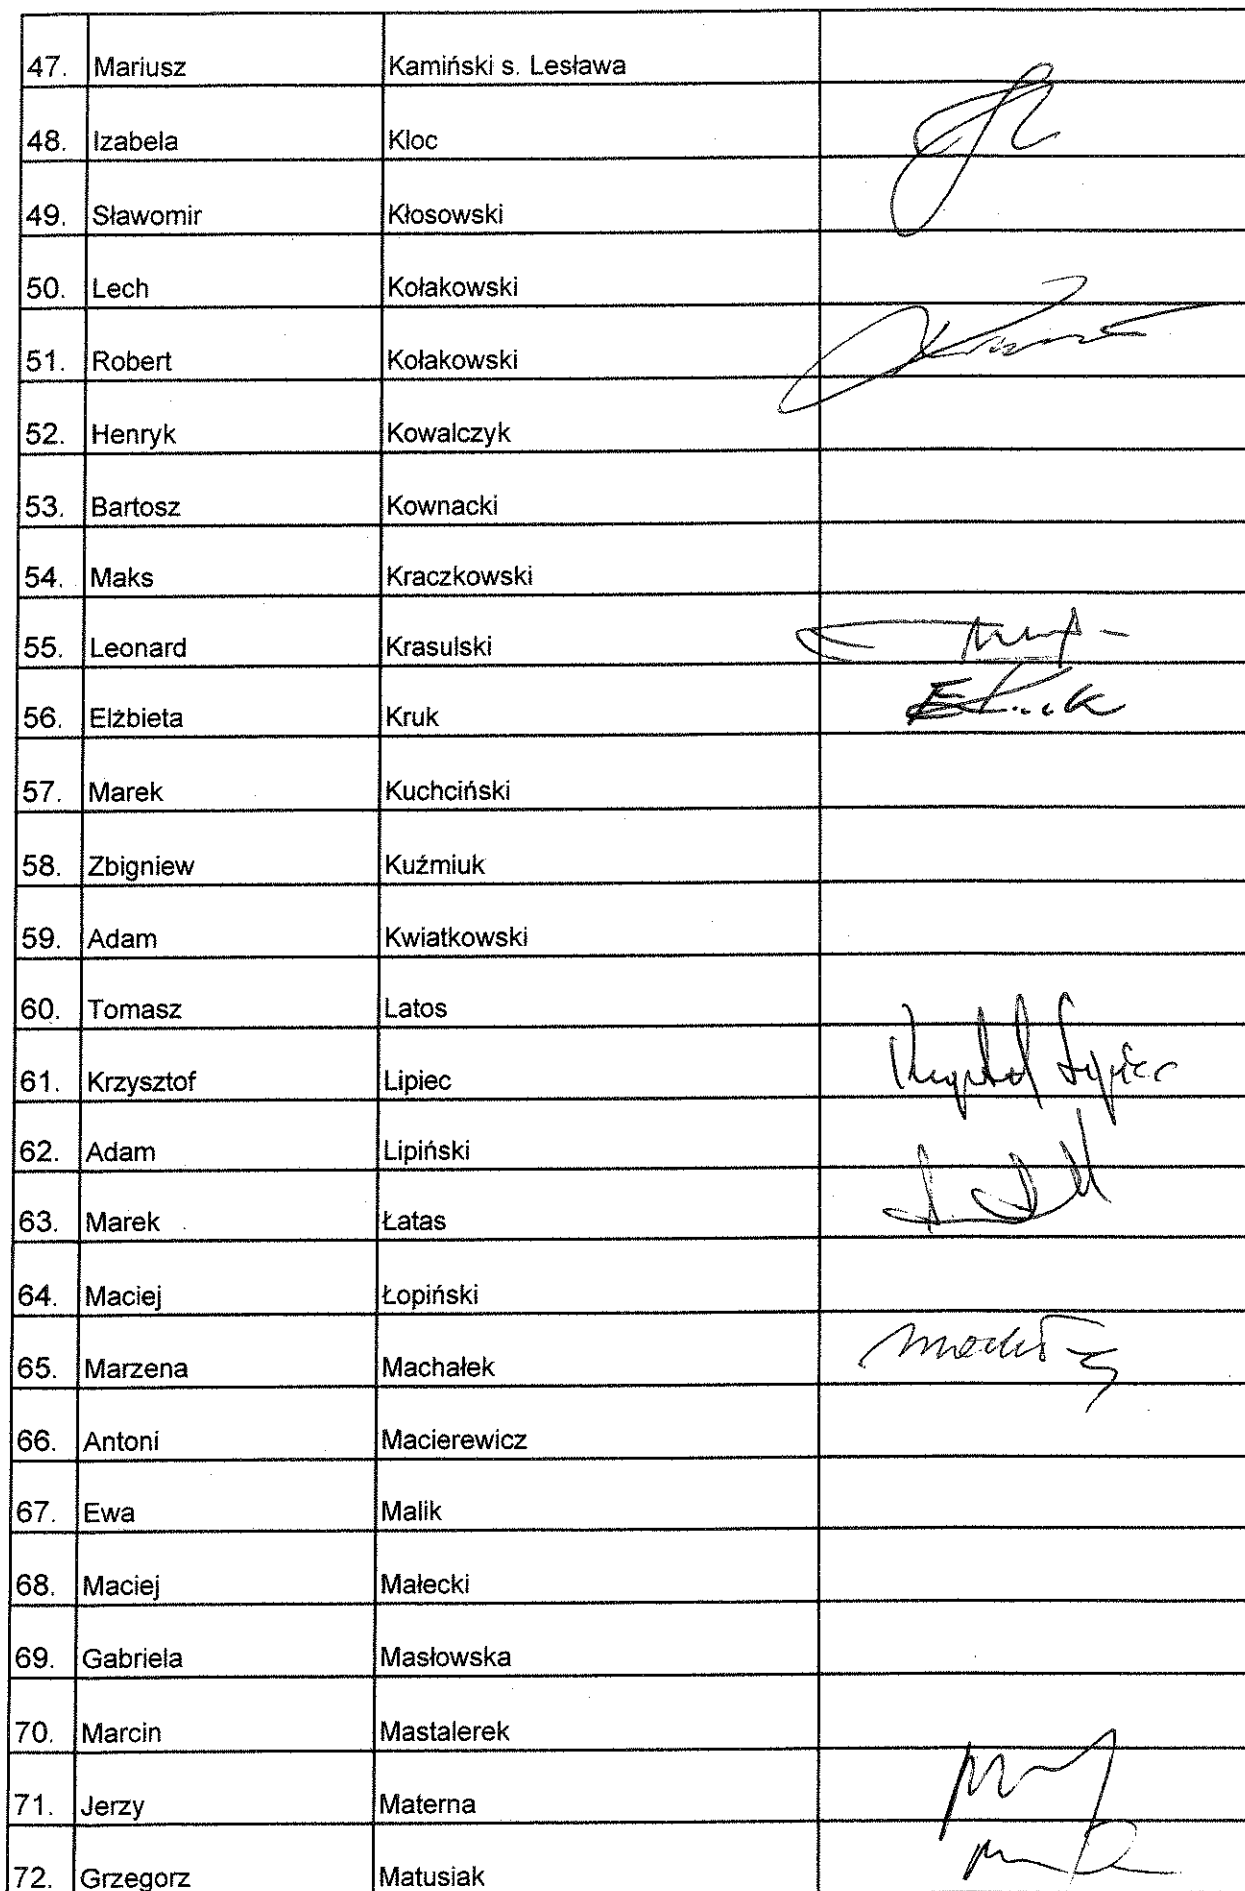 47. Mariusz Kamiński s. Lesława
48. Izabela Kloc
49. Sławomir Kłosowski
50. Lech Kołakowski
51. Robert Kołakowski
52. Henryk Kowalczyk
53. Bartosz Kownacki
54. Maks Kraczkowski
55. Leonard Krasulski
56. Elżbieta Kruk
57. Marek Kuchciński
58. Zbigniew Kuźmiuk
59. Adam Kwiatkowski
60. Tomasz Latos
61. Krzysztof Lipiec Krzysztof Lipiec
62. Adam Lipiński
63. Marek Łatas
64. Maciej Łopiński
65. Marzena Machałek
66. Antoni Macierewicz
67. Ewa Malik
68. Maciej Małecki
69. Gabriela Masłowska
70. Marcin Mastalerek
71. Jerzy Materna
72. Grzegorz Matusiak